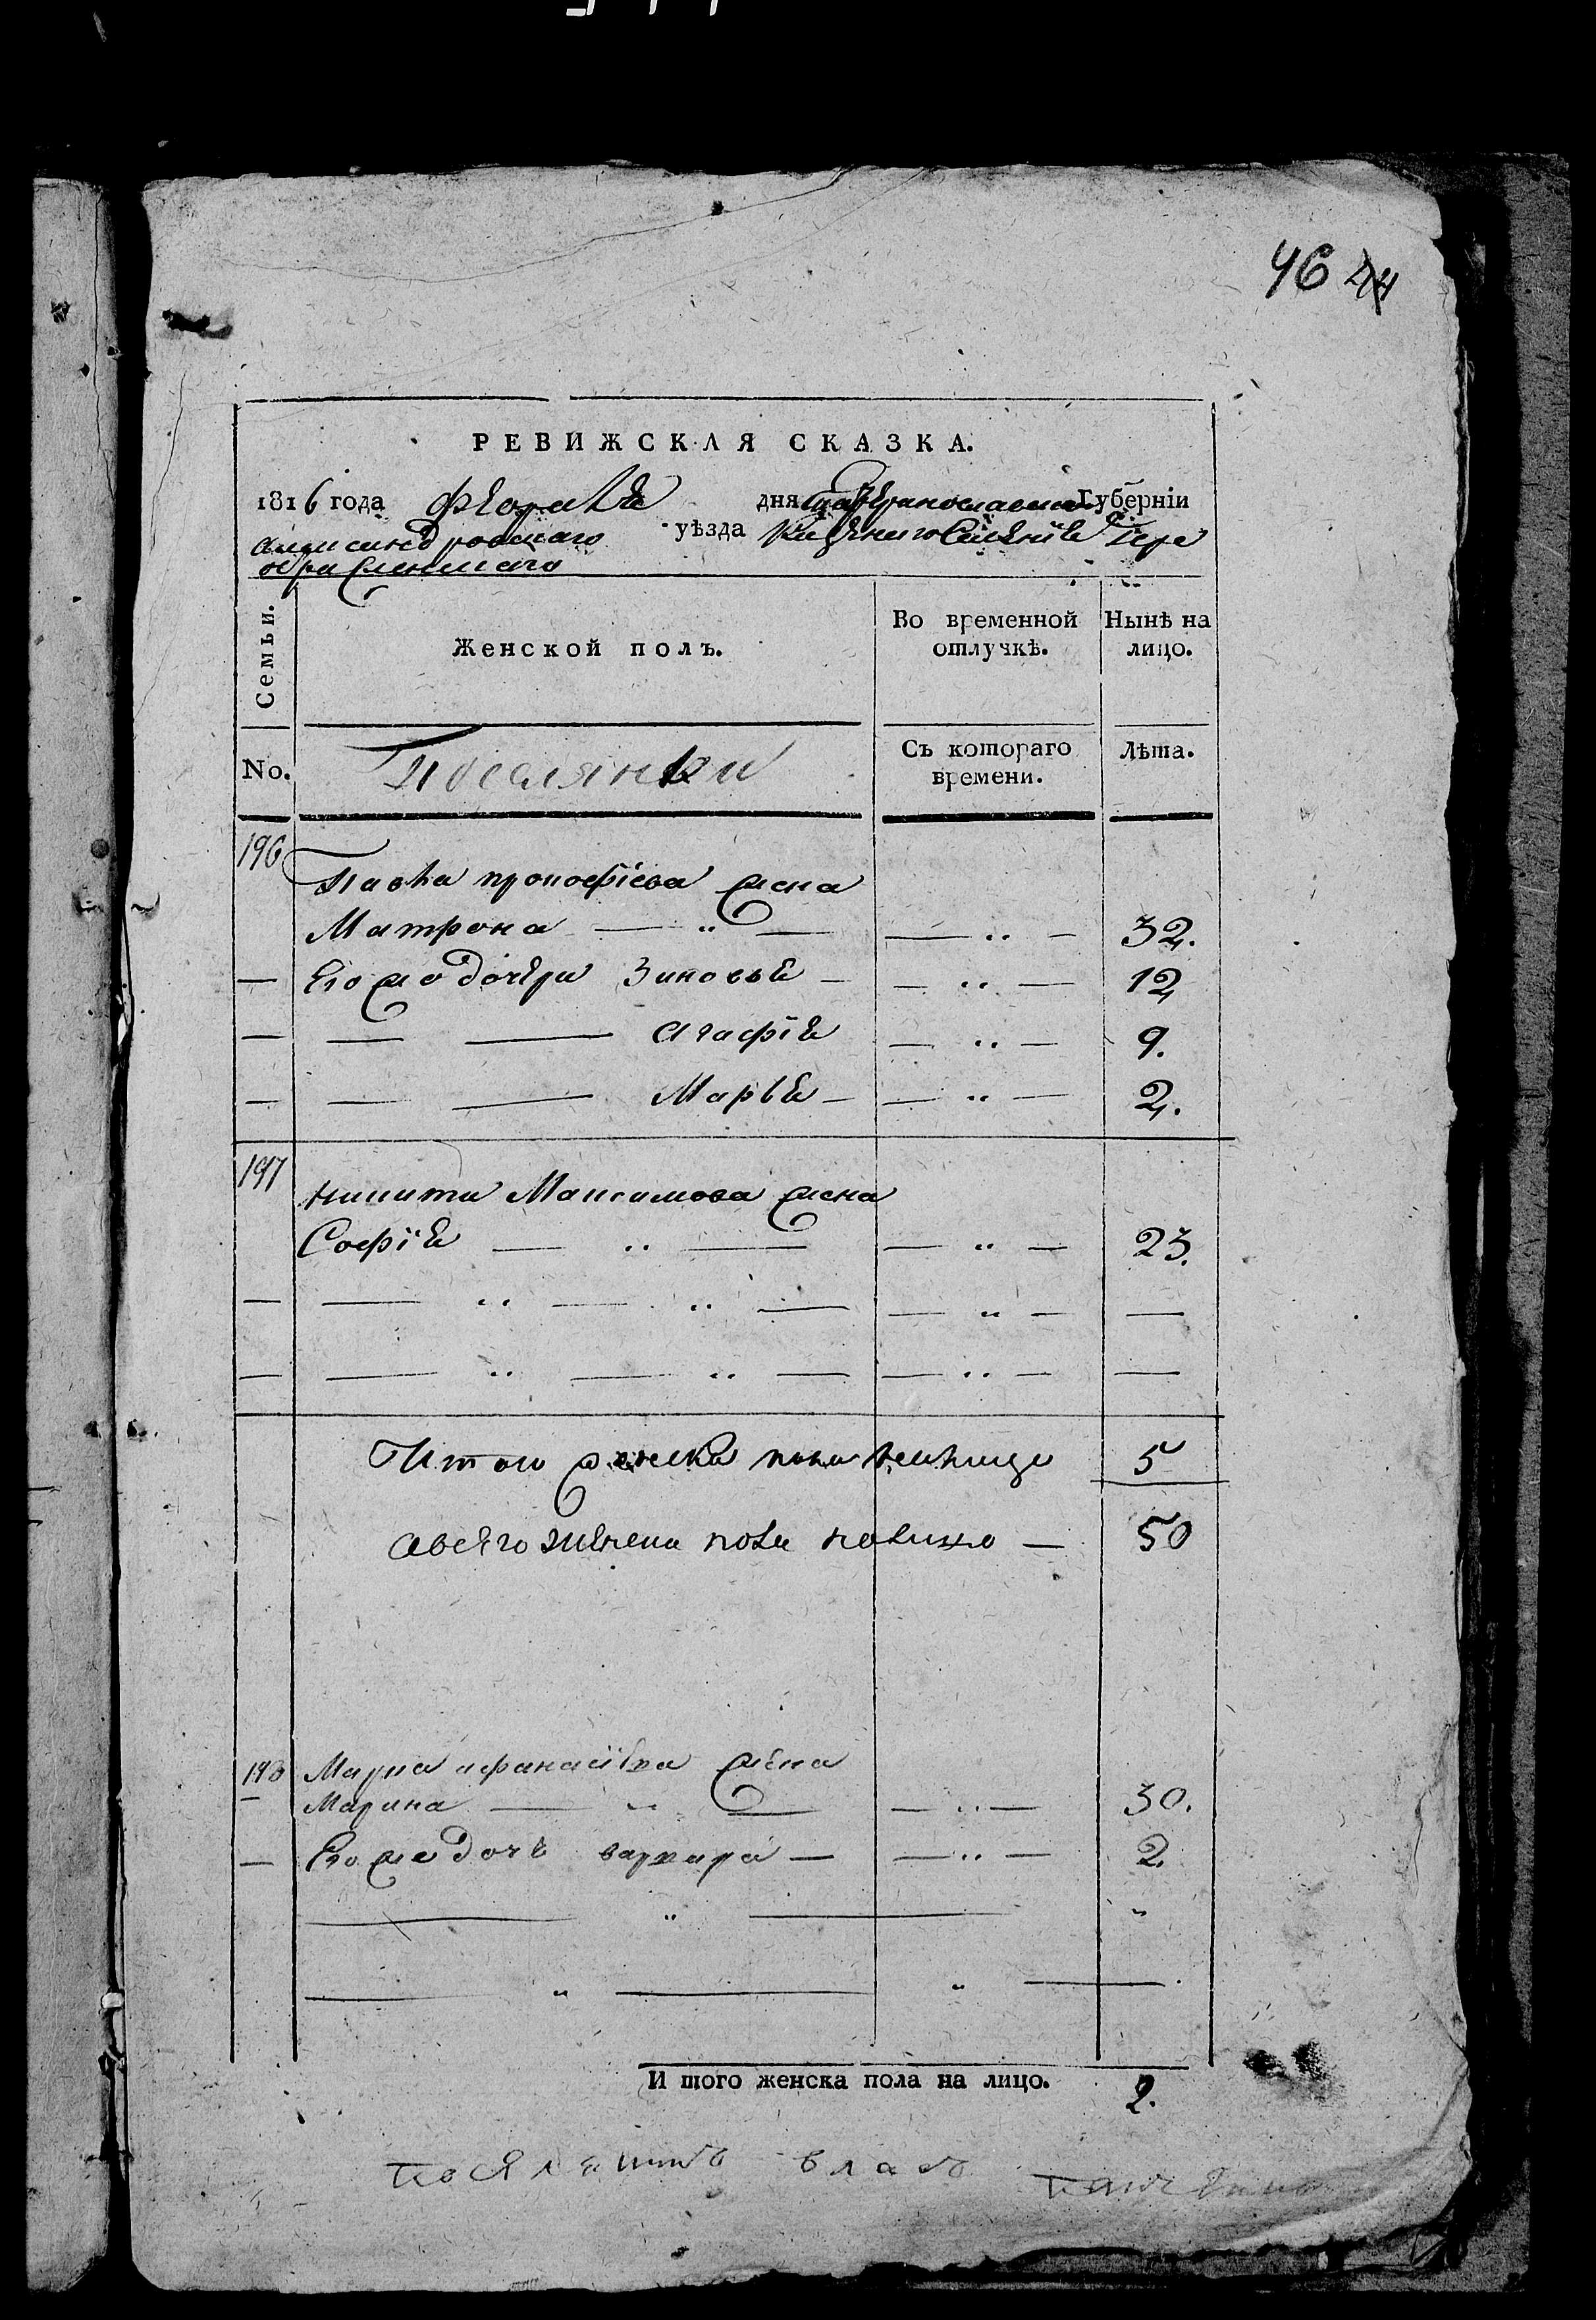 46 44
РЕВИЖСКАЯ СКАЗКА.
1816 года февраля дня Екатеринославской Губерніи
александровскаго уѣзда Казенного селенія
Семьи.
Женской полъ.
Во временной отлучкѣ.
Нынѣ на лицо.
No.
Поселянки
Съ котораго времени.
Лѣта.
196
Павла прокофіева жена
Матрона — „ — — „ — 32.
— Его же дочери Зиновья — — „ — 12
— — — Агафія — „ — 9.
— — — Марья — — „ — 2.
197
никиты Максимова жена
Софія — „ — — „ — 23.
— — „ — „ — — „ — —
— — „ — „ — — „ — —
Итого женска пола налицо 5
авсего женска пола налицо — 50
198 Марка афанасіева жена
— Марина — „ — — „ — 30.
— Его же дочь варвара — — „ — 2.
И того женска пола на лицо. 2.
поселянинъ власъ